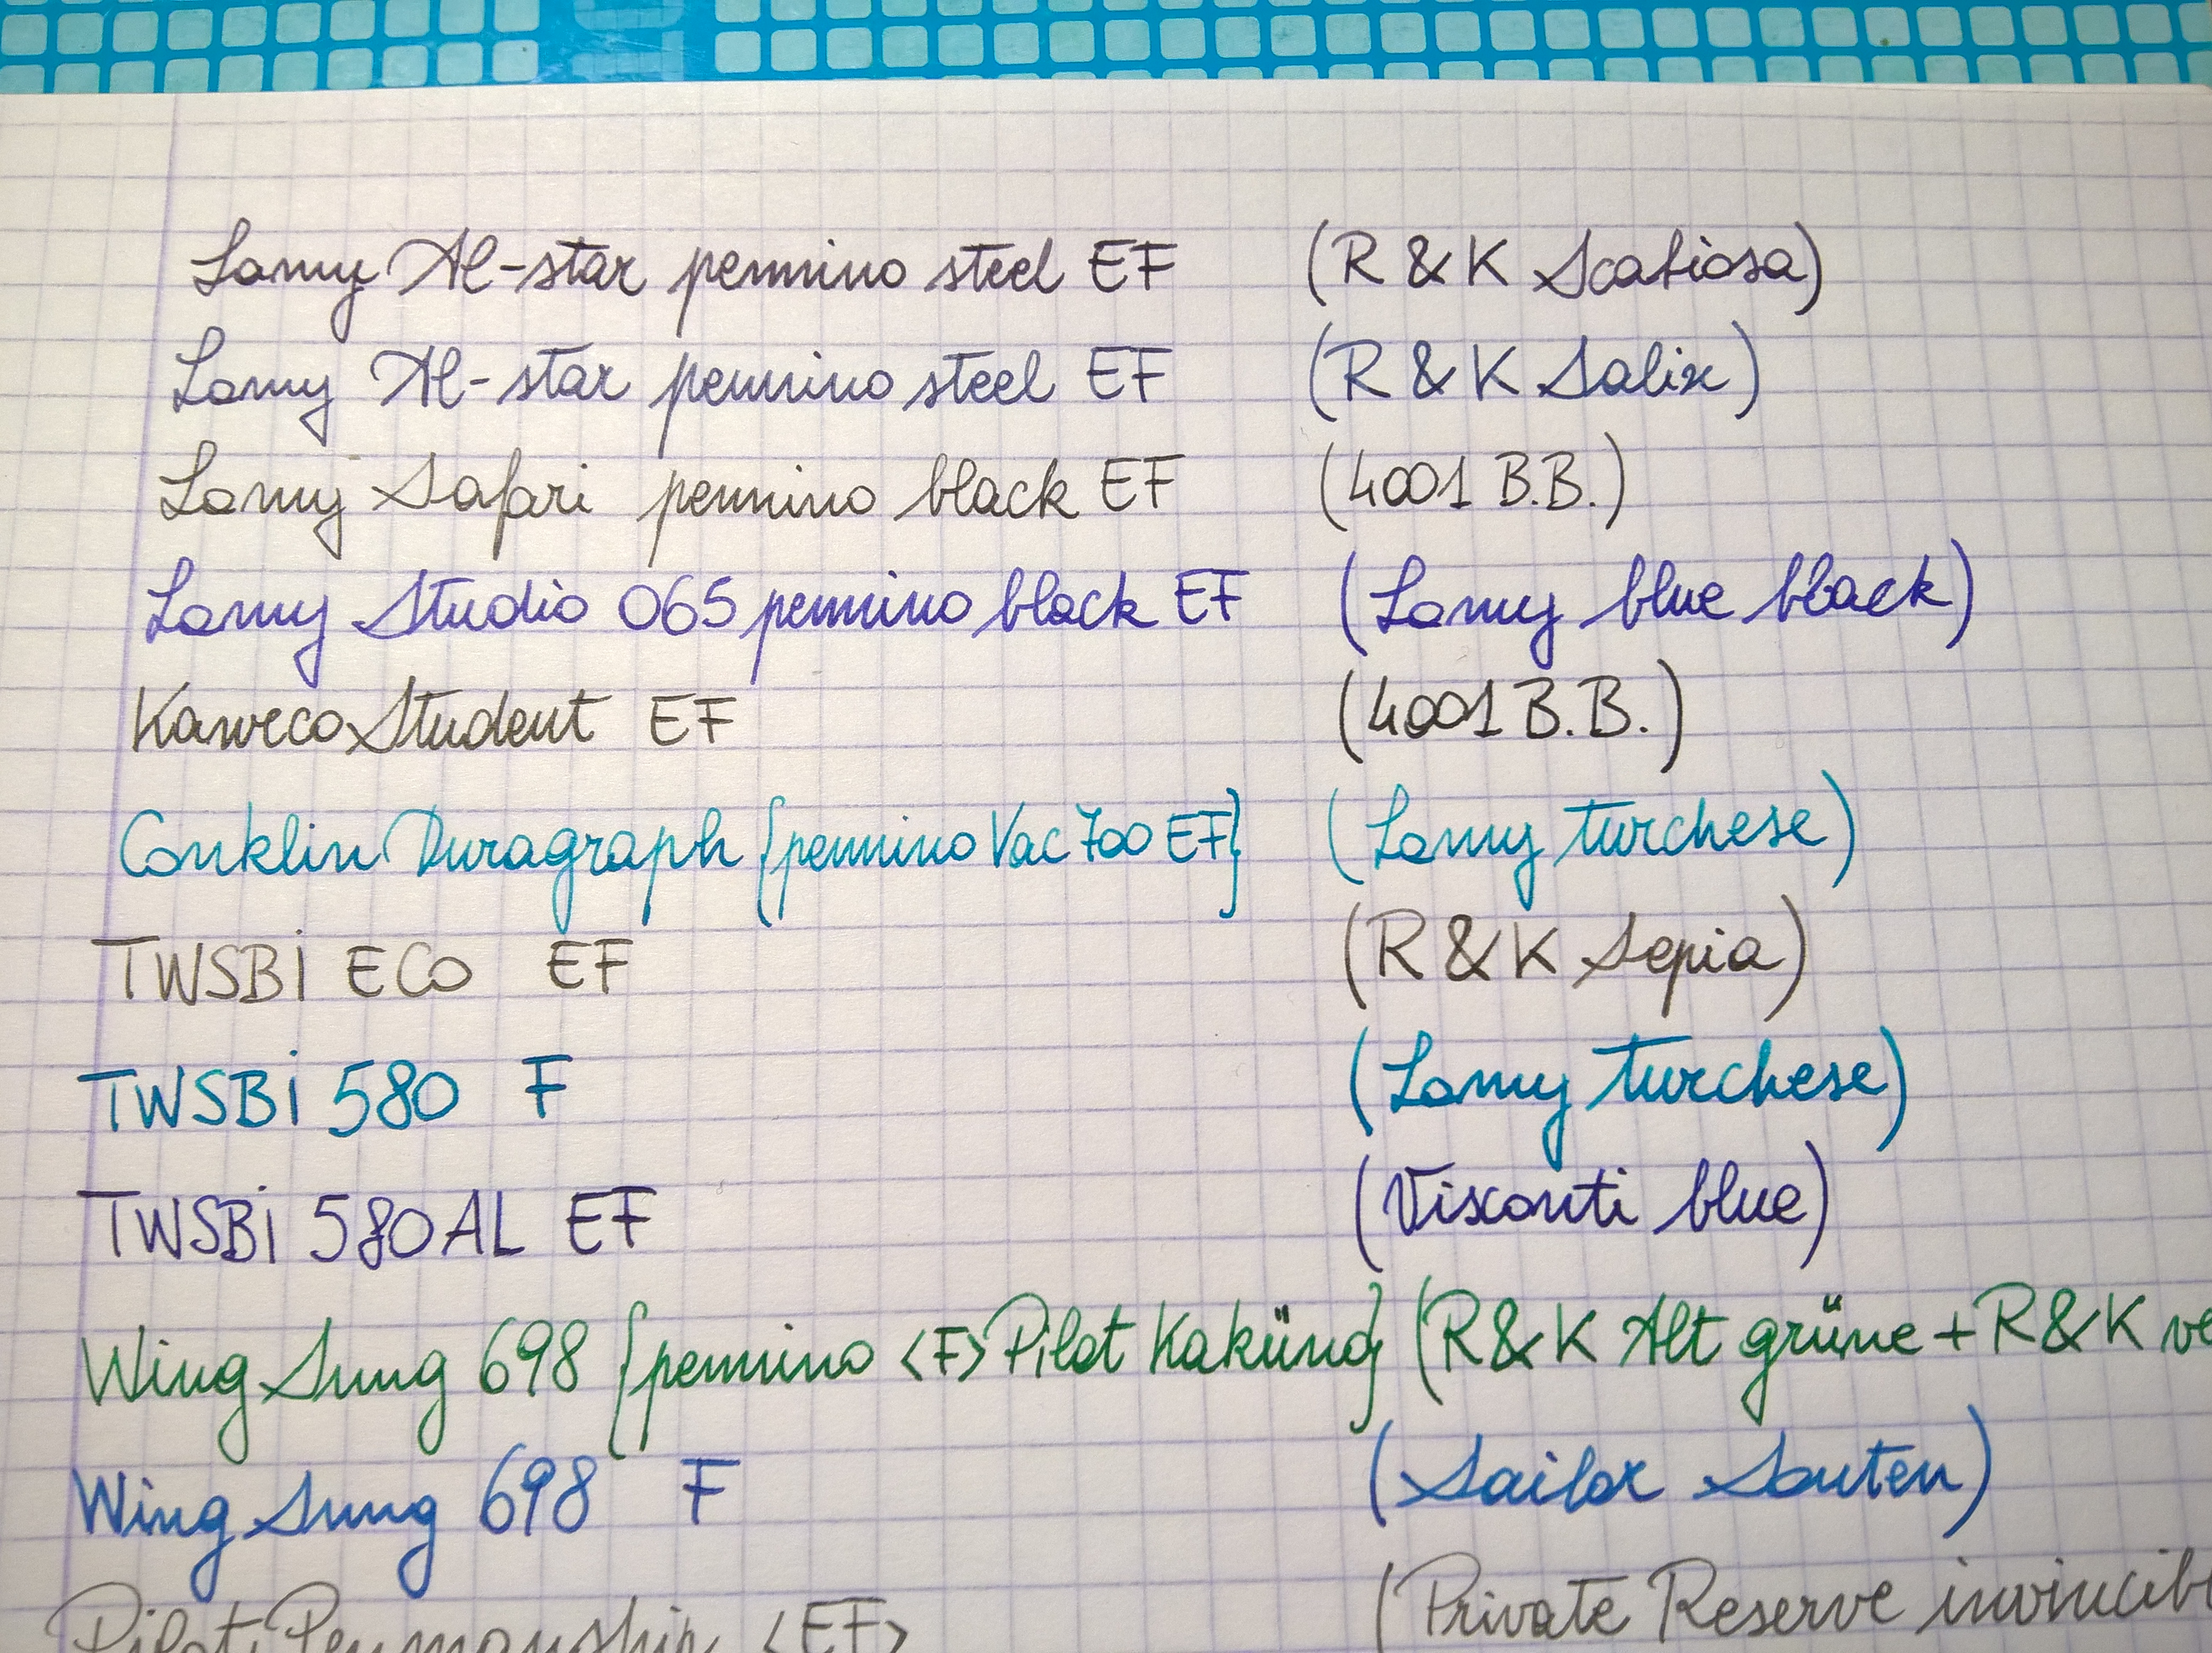 Lamy Al-star pennino steel EF (R & K Scabiosa)
Lamy Al-star pennino steel EF (R & K Salix)
Lamy Safari pennino black EF (4001 B.B.)
Lamy Studio 065 pennino black EF (Lamy blue black)
Kaweco Student EF (4001 B.B.)
Conklin Duragraph {pennino Vac 700 EF} (Lamy turchese)
TWSBi ECO EF (R & K Sepia)
TWSBi 580 F (Lamy turchese)
TWSBi 580AL EF (Visconti blue)
Wing Sung 698 {pennino <F> Pilot Kaküno} (R&K Alt grüne + R&K ve
Wing Sung 698 F (Sailor Souten)
Pilot Penmanship <EF> (Private Reserve invincib